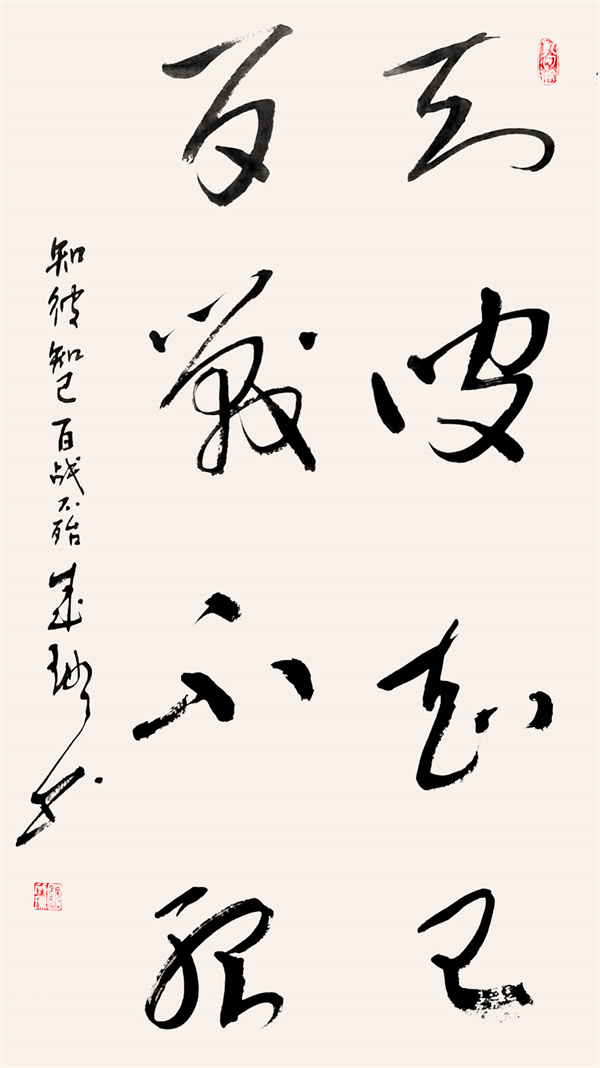 知彼知己
百戰不殆
知彼知己百战不殆